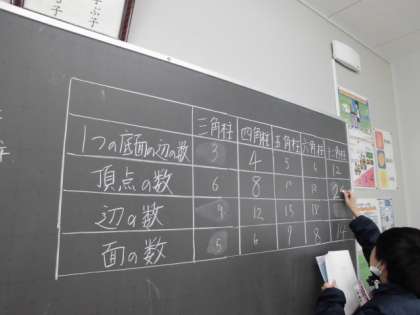 三角柱 四角柱 五角柱 六角柱 十二角柱
1つの底面の辺の数 3 4 5 6 12
頂点の数 6 8 10 12 24
辺の数 9 12 15 18
面の数 5 6 7 8 14